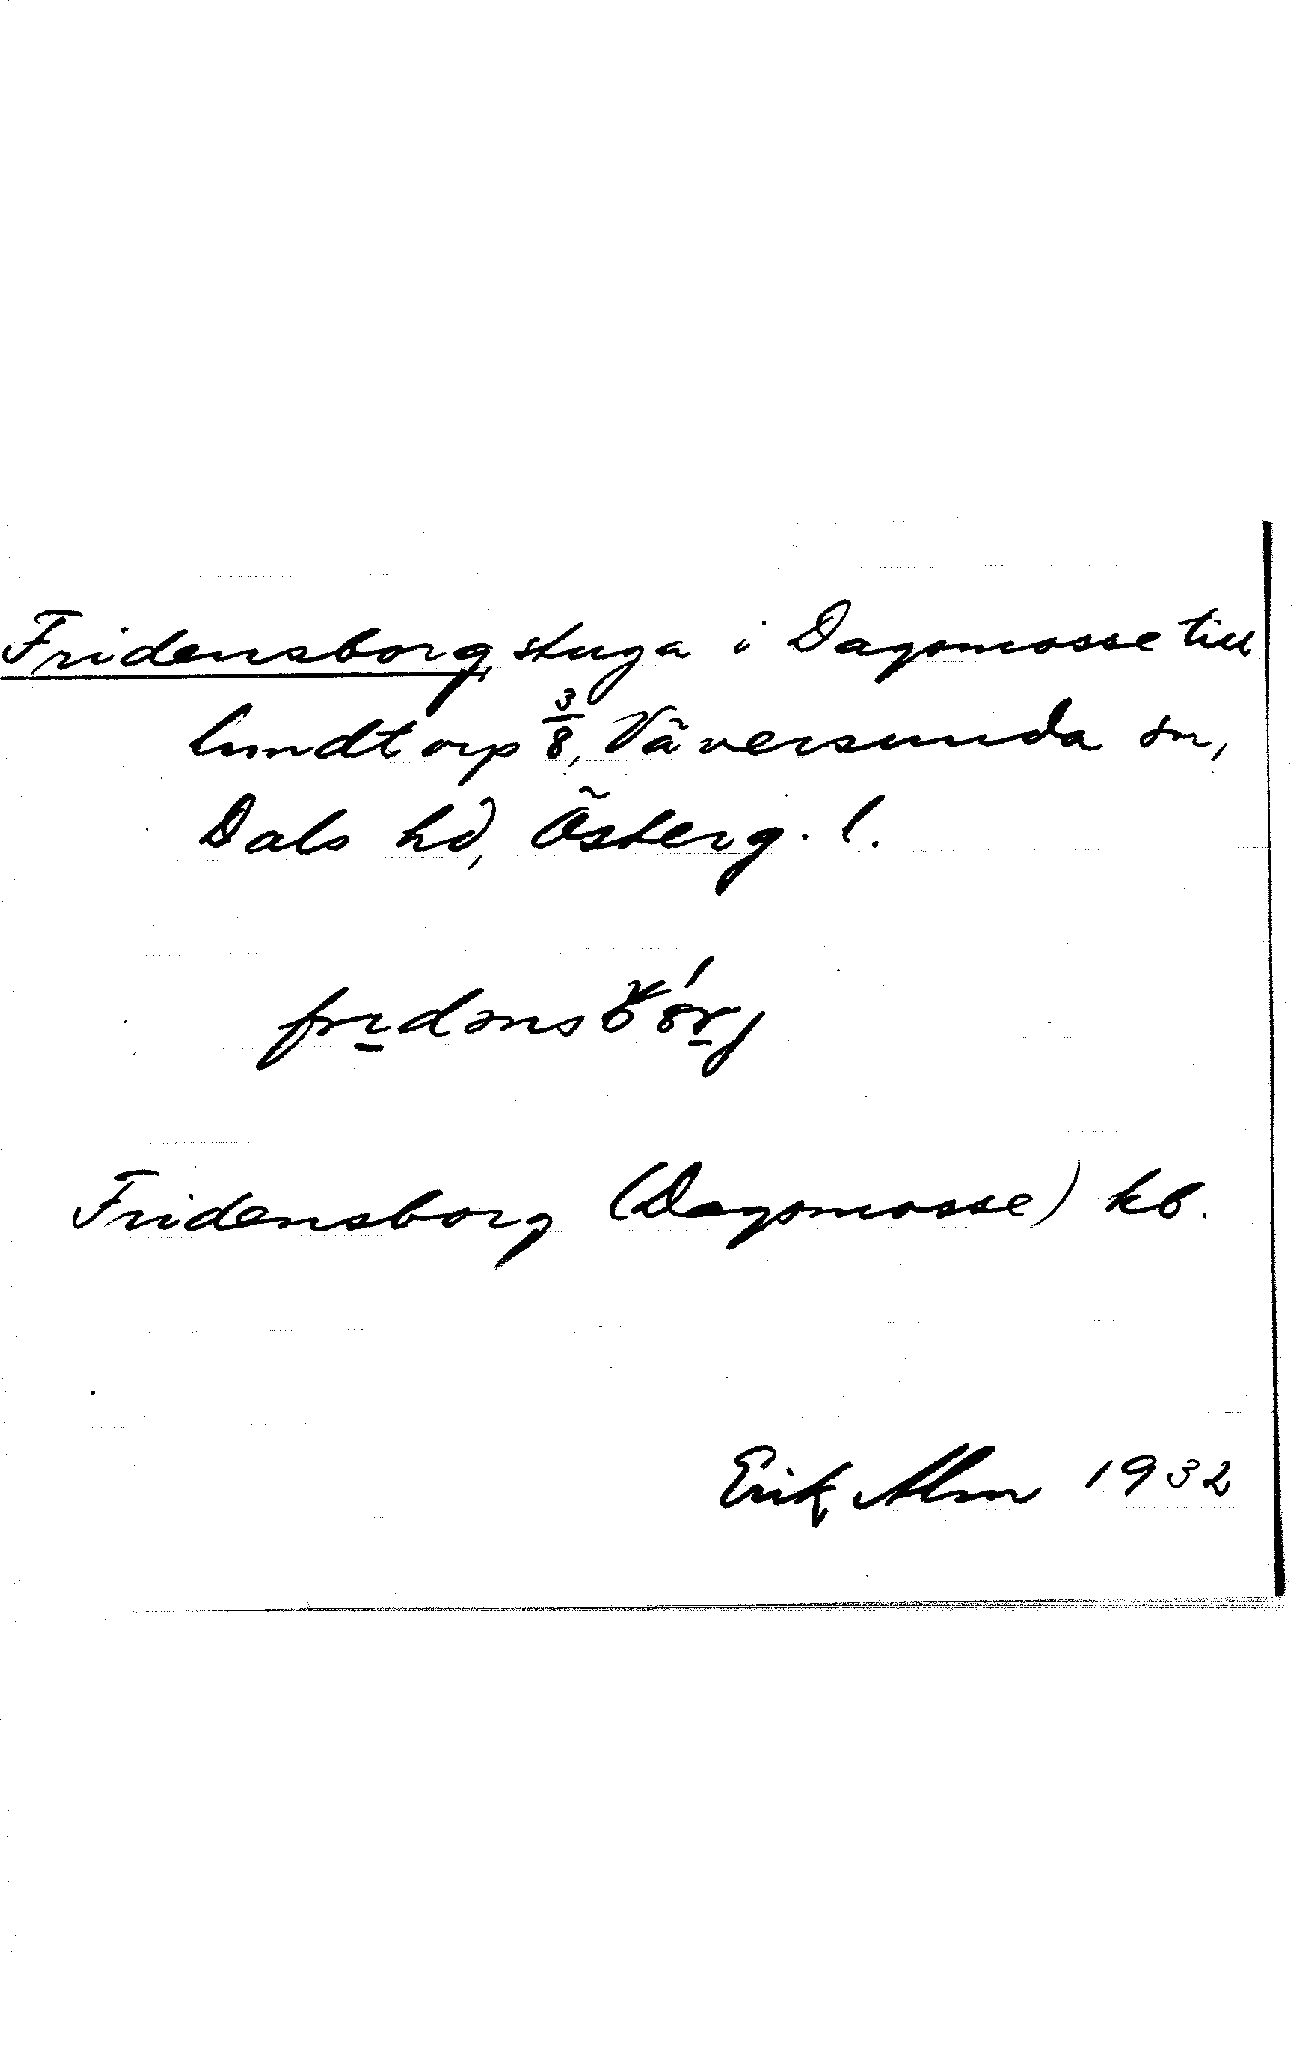 Fridensborg, stuga i Dagsmosse till
lundtorp 3/8, Väversunda sn,
Dals hd, Österg. l.
fridənsbårj
Fridensborg (Dagsmosse) kb.
Erik Alm 1932